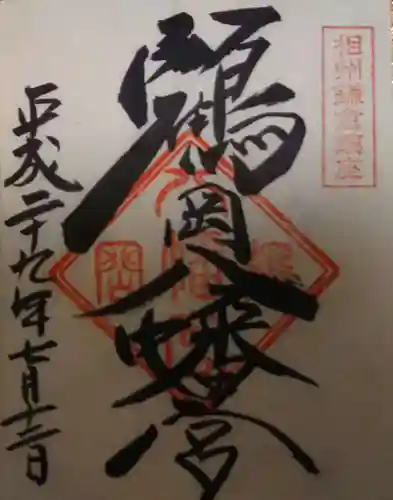 相州鎌倉鎮座
鶴岡八幡宮
平成二十九年七月十二日